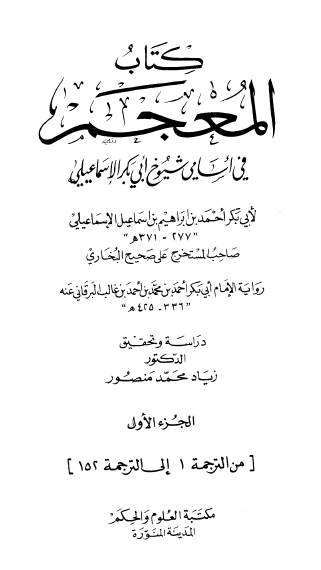 كِتَابُ
المُعْجَمِ
في أسامي شيوخ أبي بكر الإسماعيلي
لأبي بكر أحمد بن إبراهيم بن إسماعيل الإسماعيلي
"٢٧٧ - ٣٧١هـ"
صاحب المستخرج على صحيح البخاري
رواية الإمام أبي بكر أحمد بن محمد بن أحمد بن غالب البرقاني عنه
"٣٣٦ - ٤٢٥هـ"
دراسة وتحقيق
الدكتور
زياد محمد منصور
الجزء الأول
[ من الترجمة ١ إلى الترجمة ١٥٢ ]
مكتبة العلوم والحكم
المدينة المنورة